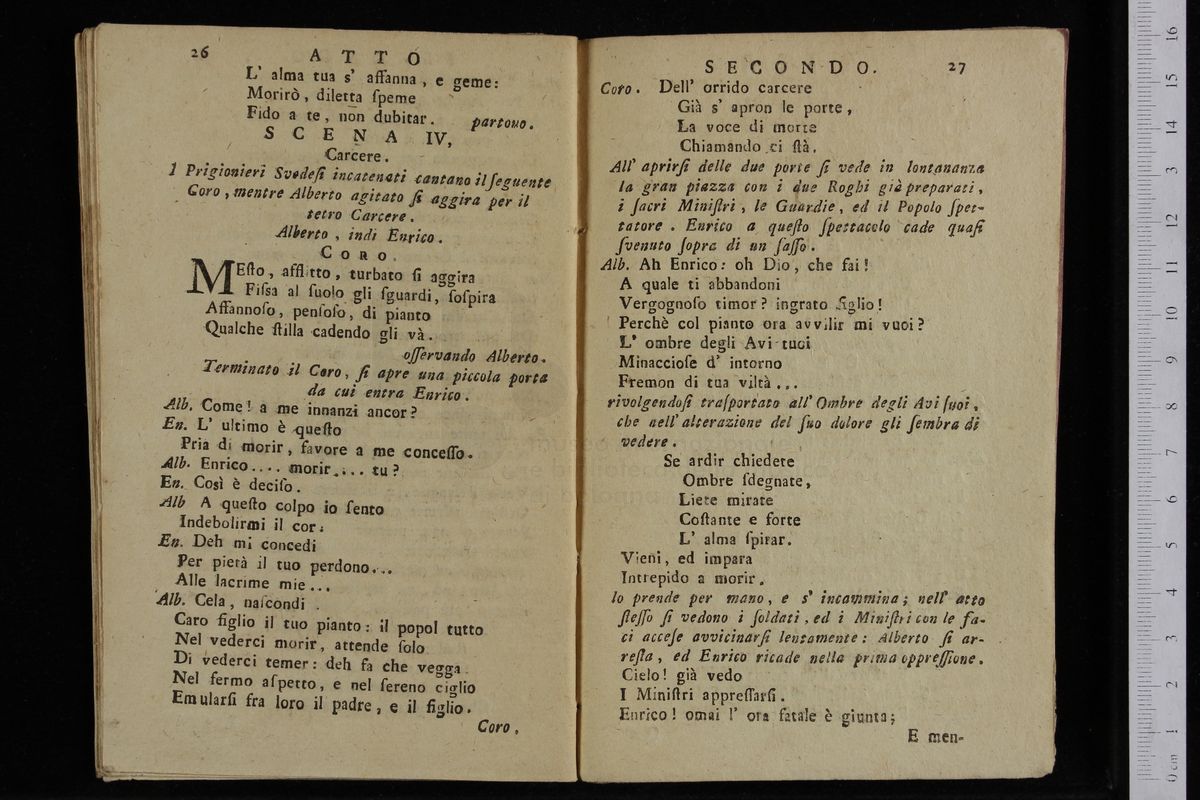 26
ATTO
L' alma tua s' affanna, e geme:
Morirò, diletta ſpeme
Fido a te, non dubitar. partono.
SCENA IV,
Carcere.
I Prigionieri Svedeſi incatenati cantano il ſeguente
Coro, mentre Alberto agitato ſi aggira per il
tetro Carcere.
Alberto, indi Enrico.
CORO.
MEſto, afflitto, turbato ſi aggira
Fiſsa al ſuolo gli ſguardi, ſoſpira
Affannoſo, penſoſo, di pianto
Qualche ſtilla cadendo gli và.
oſſervando Alberto.
Terminato il Coro, ſi apre una piccola porta
da cui entra Enrico.
Alb. Come! a me innanzi ancor?
En. L' ultimo è queſto
Pria di morir, favore a me conceſſo.
Alb. Enrico.... morir.... tu?
En. Così è deciſo.
Alb A queſto colpo io ſento
Indebolirmi il cor:
En. Deh mi concedi
Per pietà il tuo perdono...
Alle lacrime mie...
Alb. Cela, naſcondi
Caro figlio il tuo pianto: il popol tutto
Nel vederci morir, attende ſolo
Di vederci temer: deh fa che vegga
Nel fermo aſpetto, e nel ſereno ciglio
Emularſi fra loro il padre, e il figlio.
Coro.
SECONDO. 27
Coro. Dell' orrido carcere
Già s' apron le porte,
La voce di morte
Chiamando ci ſtà.
All' aprirſi delle due porte ſi vede in lontananza
la gran piazza con i due Roghi già preparati,
i ſacri Miniſtri, le Guardie, ed il Popolo ſpet-
tatore. Enrico a queſto ſpettacolo cade quaſi
ſvenuto ſopra di un ſaſſo.
Alb. Ah Enrico: oh Dio, che fai!
A quale ti abbandoni
Vergognoſo timor? ingrato figlio!
Perchè col pianto ora avvilir mi vuoi?
L' ombre degli Avi tuoi
Minaccioſe d' intorno
Fremon di tua viltà...
rivolgendoſi traſportato all' Ombre degli Avi ſuoi,
che nell' alterazione del ſuo dolore gli ſembra di
vedere.
Se ardir chiedete
Ombre ſdegnate,
Liete mirate
Coſtante e forte
L' alma ſpirar.
Vieni, ed impara
Intrepido a morir.
lo prende per mano, e s' incammina; nell' atto
ſteſſo ſi vedono i ſoldati, ed i Miniſtri con le fa-
ci acceſe avvicinarſi lentamente: Alberto ſi ar-
reſta, ed Enrico ricade nella prima oppreſſione.
Cielo! già vedo
I Miniſtri appreſſarſi.
Enrico! omai l' ora fatale è giunta;
E men-